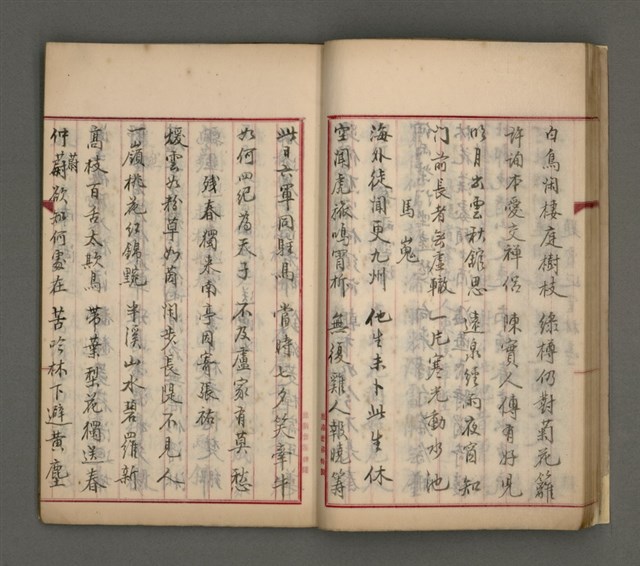 白鳥閑棲庭樹枝　綠樽仍對菊花籬
許詢本愛交禪侶　陳寔人傳有好兒
明月出雲秋館思　遠泉經雨夜窗知
門前長者無虛轍　一片寒光動水池
馬嵬
海外徒聞更九州　他生未卜此生休
空聞虎旅鳴宵柝　無復雞人報曉籌
此日六軍同駐馬　當時七夕笑牽牛
如何四紀為天子　不及盧家有莫愁
殘春獨來南亭因寄張祜
煖雲如粉草如茵　閒步長隄不見人
一嶺桃花紅錦黦　半溪山水碧羅新
高枝百舌太欺鳥　帶葉梨花獨送春
仲蔚欲知何處在　苦吟林下避黃塵
蔚